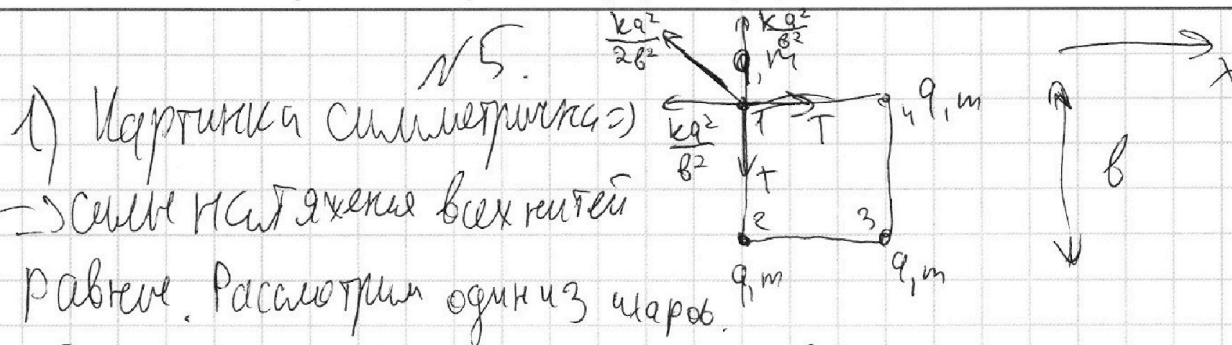 N5.
1) Картинка симметрична =>
=> силы натяжения всех нитей
равны. Рассмотрим один из шаров.
kq²/2b²
kq²/b²
q, m
kq²/b²
1
T
T
4 q, m
2
3
q, m
q, m
b
x